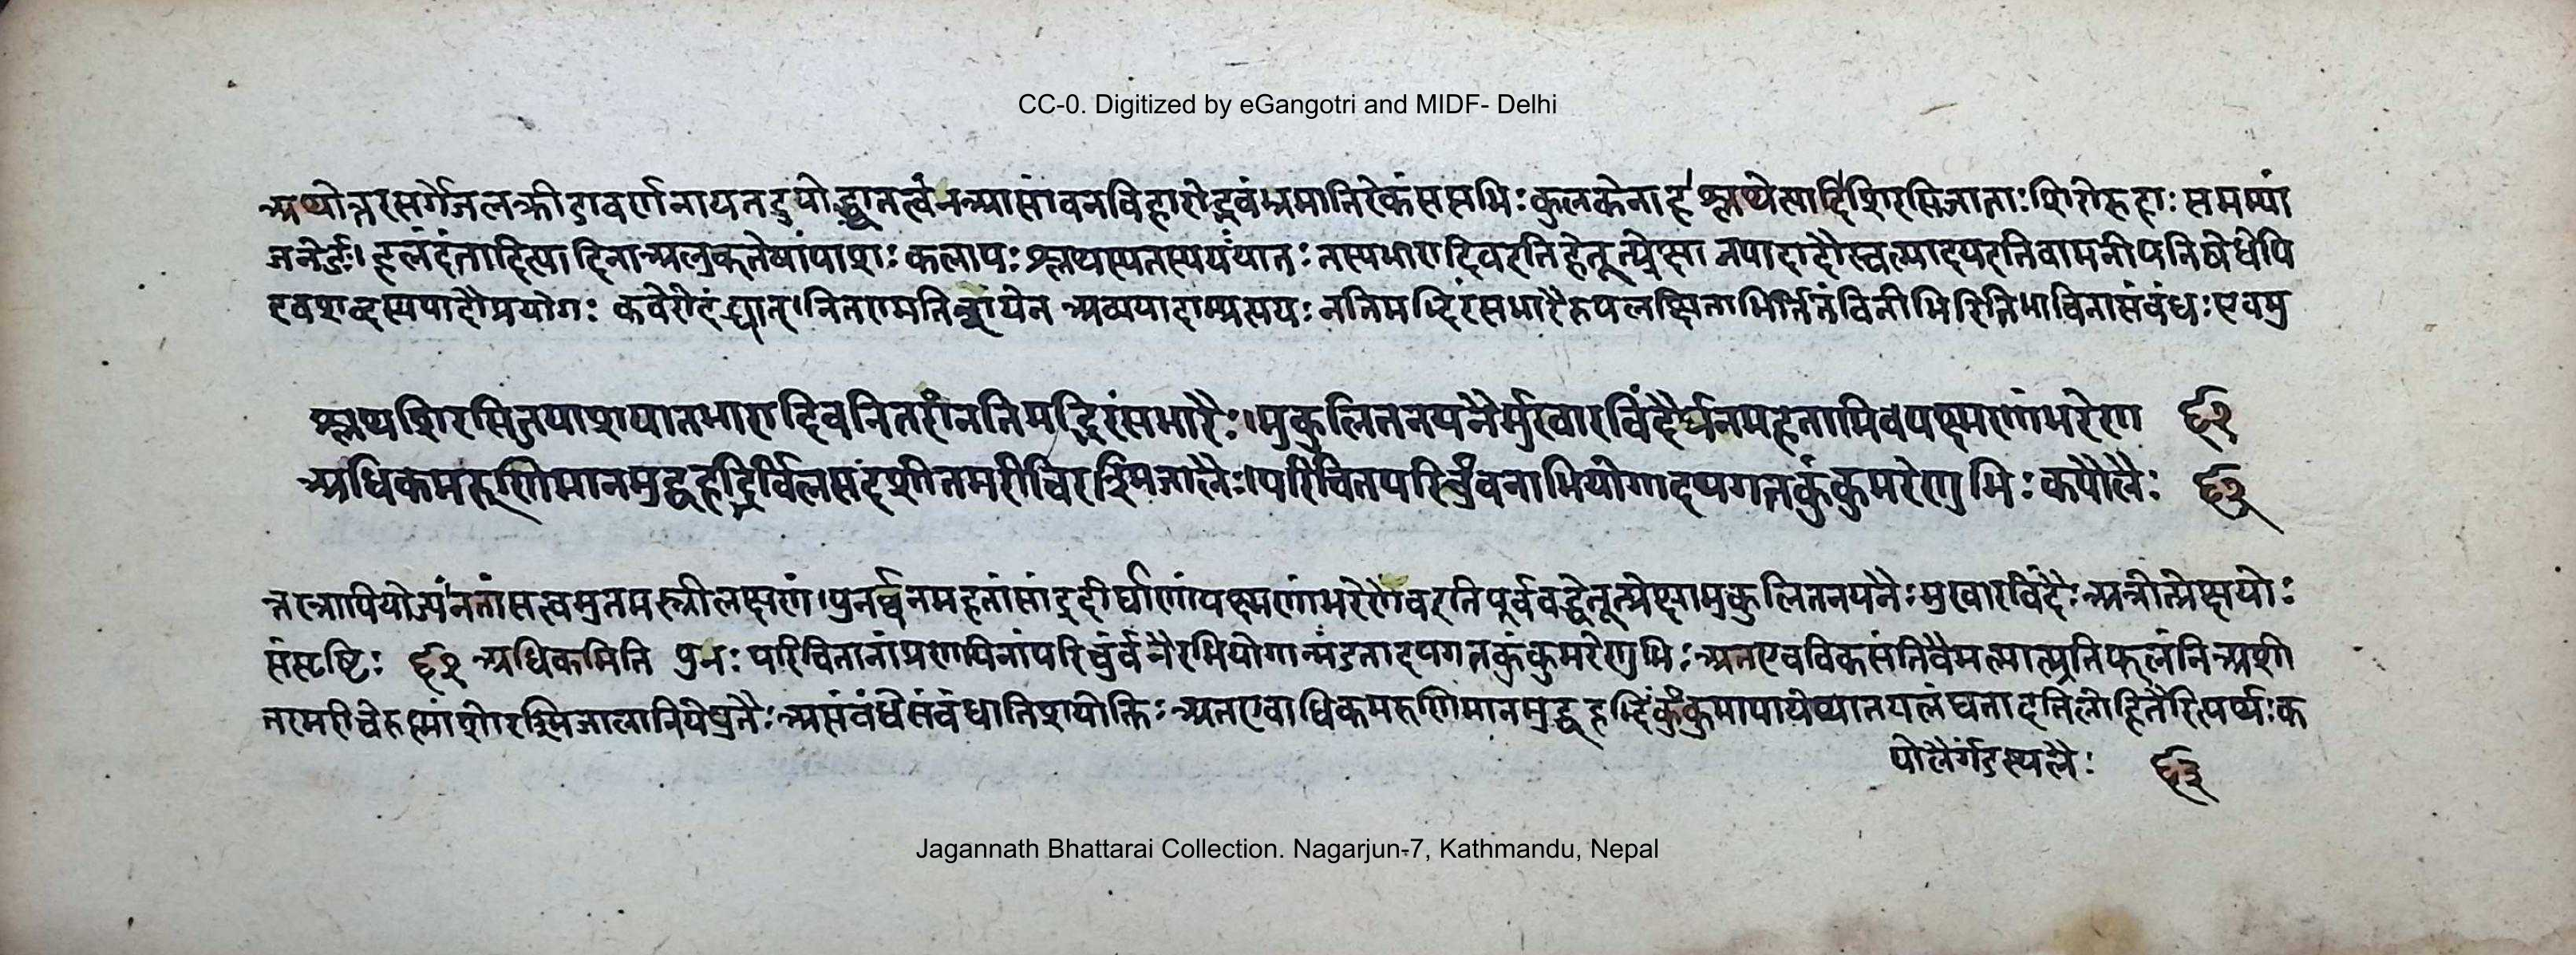 CC-0. Digitized by eGangotri and MIDF- Delhi
अथोत्तरसर्गेजलक्रीडावर्णनाय वनविहारोद्भवंश्रमातिरेकंसप्तभिः कुलकेनाह श्लथेत्यादि शिरसिजाताः शिरोरुहाः सप्तम्यां
जनेर्डः। हलदंतादित्यादिनाअलुक् तेषांपाशः कलापः श्लथस्यतस्य तस्यभारादिवइतिहेतूत्प्रेक्षा नपादादौखल्वादयइतिवामनीयनिषेधेपि
इवशब्दस्यपादौप्रयोगः नितरामति अव्ययादाम्प्रत्ययः नतिमद्भिरंसभारैरुपलक्षिताभिर्नितंबिनीभिरितिभाविनासंबंधः एवमु
श्लथशिरसिजपाशपातभारादिवनितरांनतिमद्भिरंसभारैः। मुकुलितनयनैर्मुखारविंदैर्घनमहतामिवपक्ष्मणांभरेण ६२
अधिकमरुणिमानमुद्वहद्भिर्विलसदशीतमरीचिरश्मिजालैः। परिचितपरिचुंबनाभियोगादपगतकुंकुमरेणुभिः कपोलैः ६३
त्तरत्रापियोज्यं नतांसत्वमुत्तमस्त्रीलक्षणं। पुनर्घनमहतांसांद्रदीर्घाणांपक्ष्मणांभरेणेवइतिपूर्ववद्धेतूत्प्रेक्षामुकुलितनयनैः मुखारविंदैः अत्रोत्प्रेक्षयोः
संसृष्टिः ६२ अधिकमिति पुनः परिचितानांप्रणयिनांपरिचुंबनैरभियोगान्मंडनादपगतकुंकुमरेणुभिः अतएवविकसंतिवैमल्यात्प्रतिफलंति अशी
तमरीचेरुष्णांशोरश्मिजालानियेषुतैः असंबंधेसंबंधातिशयोक्तिः अतएवाधिकमरुणिमानमुद्वहद्भिः कुंकुमापायेप्यातपलंघनादतिलोहितैरित्यर्थः क
पोलैर्गंडस्थलैः ६३
Jagannath Bhattarai Collection. Nagarjun-7, Kathmandu, Nepal